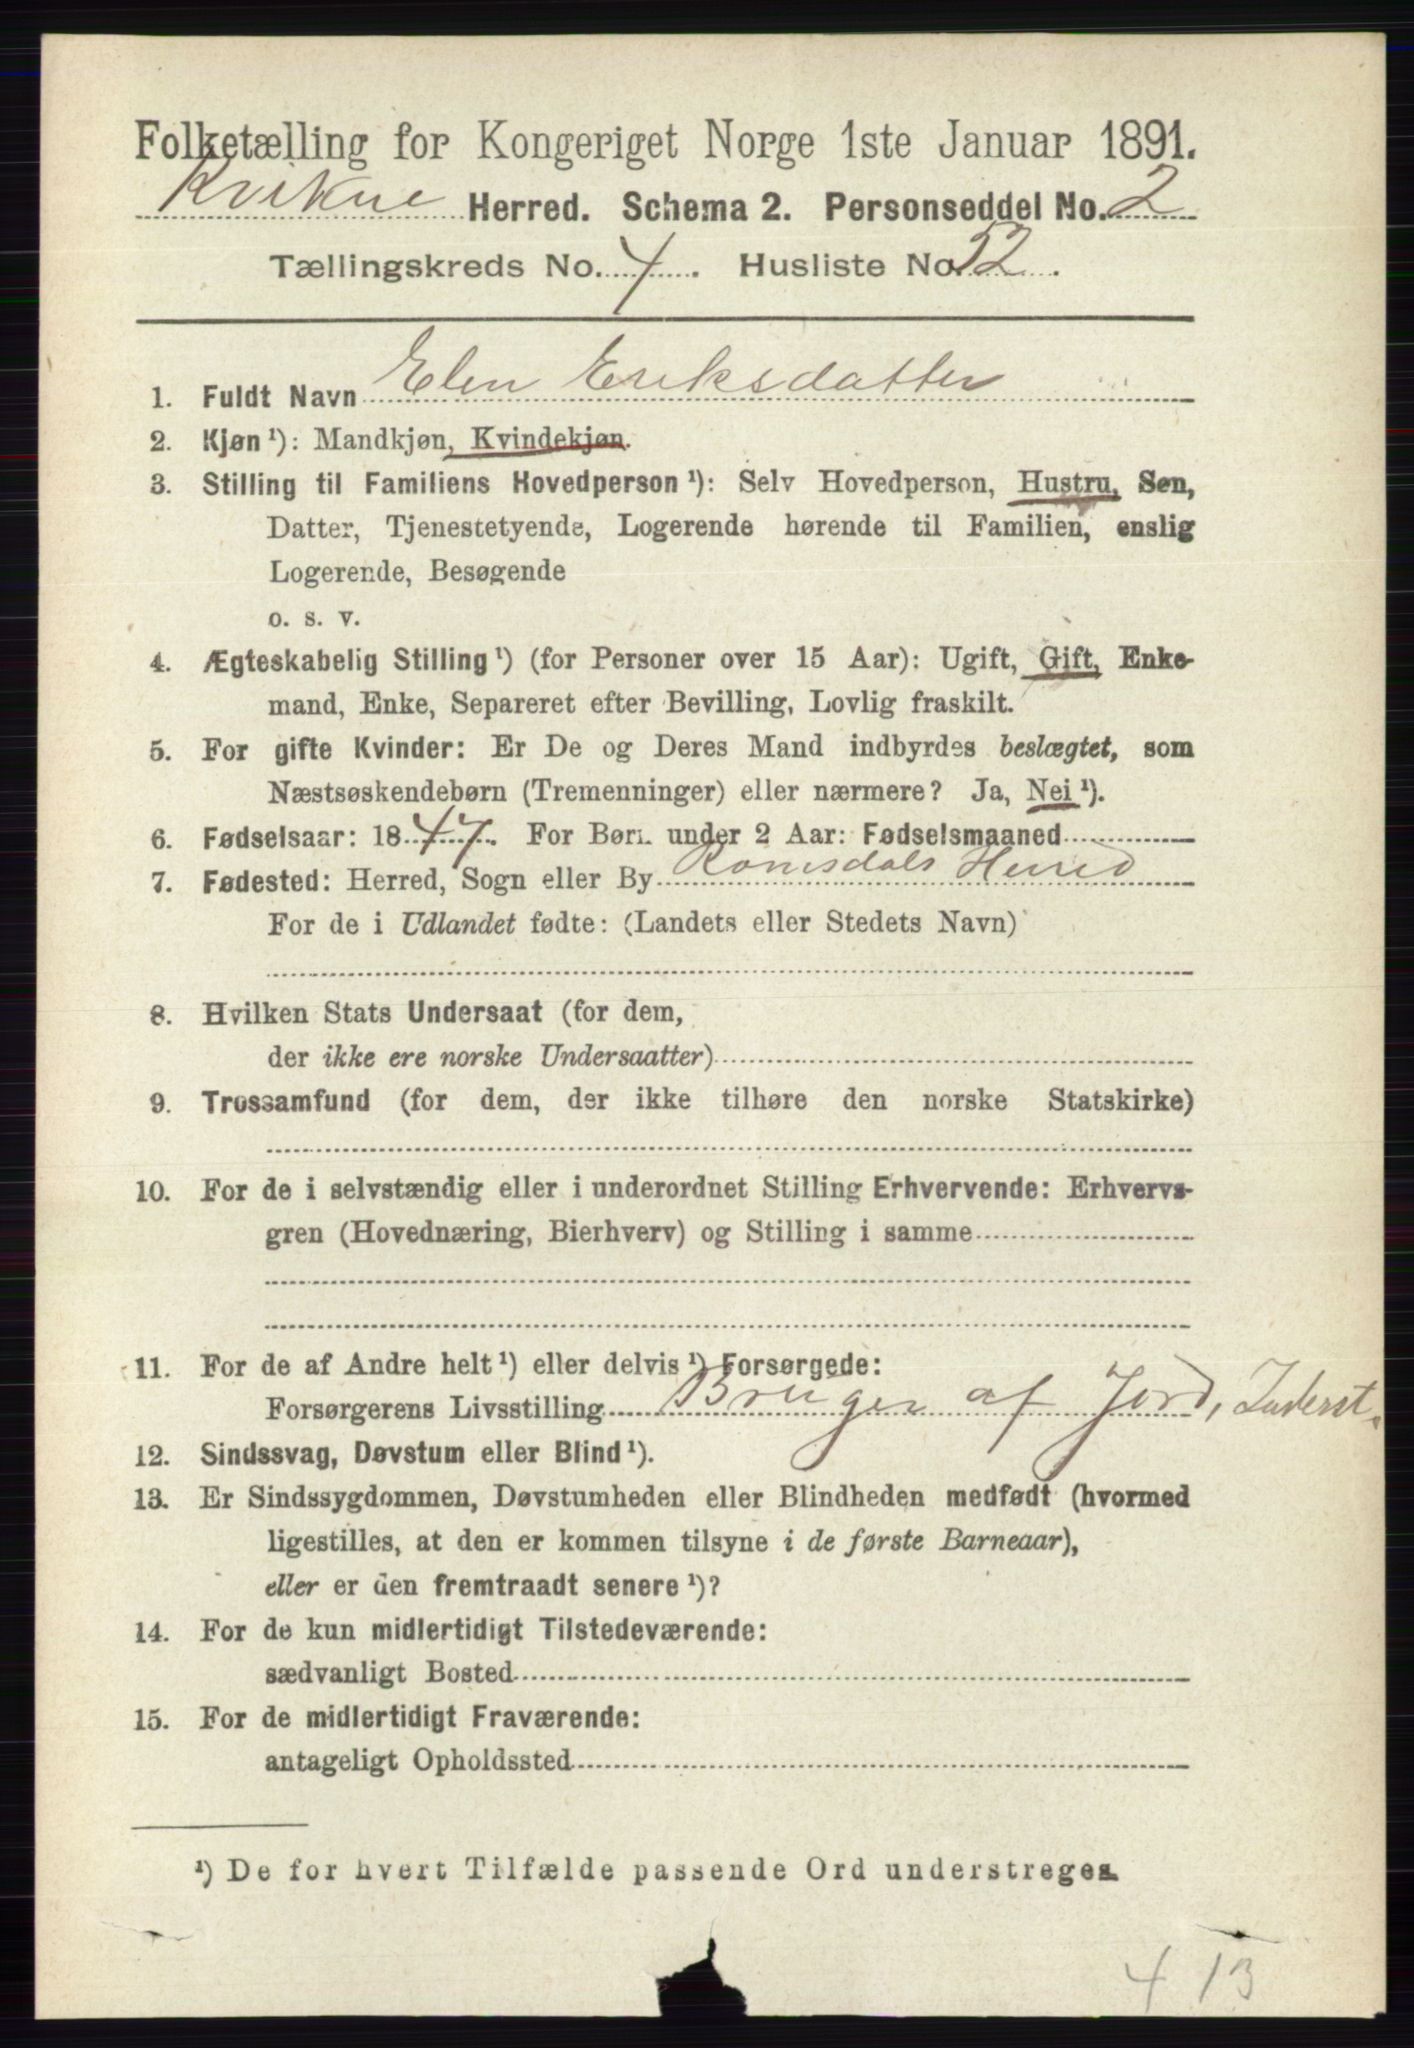 Folketælling for Kongeriget Norge 1ste Januar 1891.
Kvikne Herred. Schema 2. Personseddel No. 2
Tællingskreds No. 4. Husliste No. 52.
1. Fuldt Navn Elen Eriksdatter
2. Kjøn¹): Mandkjøn, Kvindekjøn.
3. Stilling til Familiens Hovedperson¹): Selv Hovedperson, Hustru, Søn,
Datter, Tjenestetyende, Logerende hørende til Familien, enslig
Logerende, Besøgende
o. s. v.
4. Ægteskabelig Stilling¹) (for Personer over 15 Aar): Ugift, Gift, Enke-
mand, Enke, Separeret efter Bevilling, Lovlig fraskilt.
5. For gifte Kvinder: Er De og Deres Mand indbyrdes beslægtet, som
Næstsøskendebørn (Tremenninger) eller nærmere? Ja, Nei¹).
6. Fødselsaar: 1847. For Børn under 2 Aar: Fødselsmaaned
7. Fødested: Herred, Sogn eller By Romsdals Herred
For de i Udlandet fødte: (Landets eller Stedets Navn)
8. Hvilken Stats Undersaat (for dem,
der ikke ere norske Undersaatter)
9. Trossamfund (for dem, der ikke tilhøre den norske Statskirke)
10. For de i selvstændig eller i underordnet Stilling Erhvervende: Erhvervs-
gren (Hovednæring, Bierhverv) og Stilling i samme
11. For de af Andre helt¹) eller delvis¹) Forsørgede:
Forsørgerens Livsstilling Bruger af Jord, Inderst.
12. Sindssvag, Døvstum eller Blind¹).
13. Er Sindssygdommen, Døvstumheden eller Blindheden medfødt (hvormed
ligestilles, at den er kommen tilsyne i de første Barneaar),
eller er den fremtraadt senere¹)?
14. For de kun midlertidigt Tilstedeværende:
sædvanligt Bosted
15. For de midlertidigt Fraværende:
antageligt Opholdssted
¹) De for hvert Tilfælde passende Ord understreges.
413